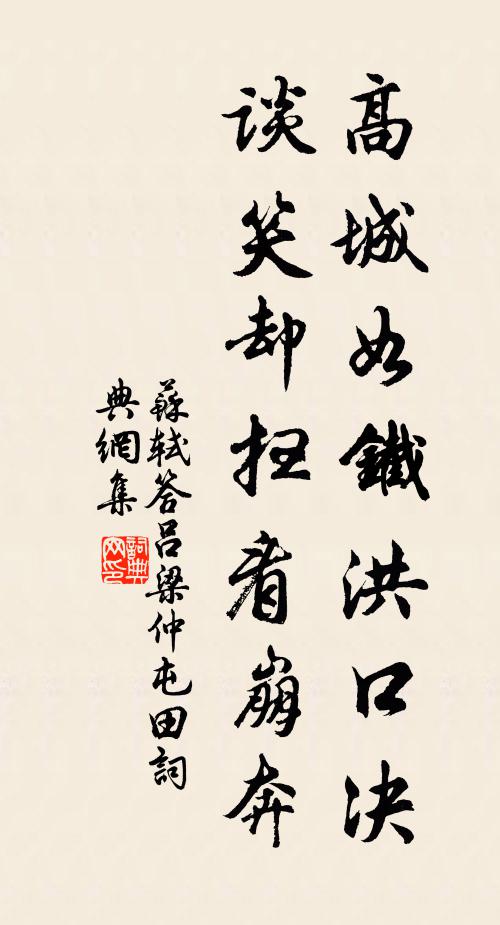 高城如鐵洪口決
談笑却掃看崩奔
蘇軾答呂梁仲屯田詞
典網集
詞典
网印